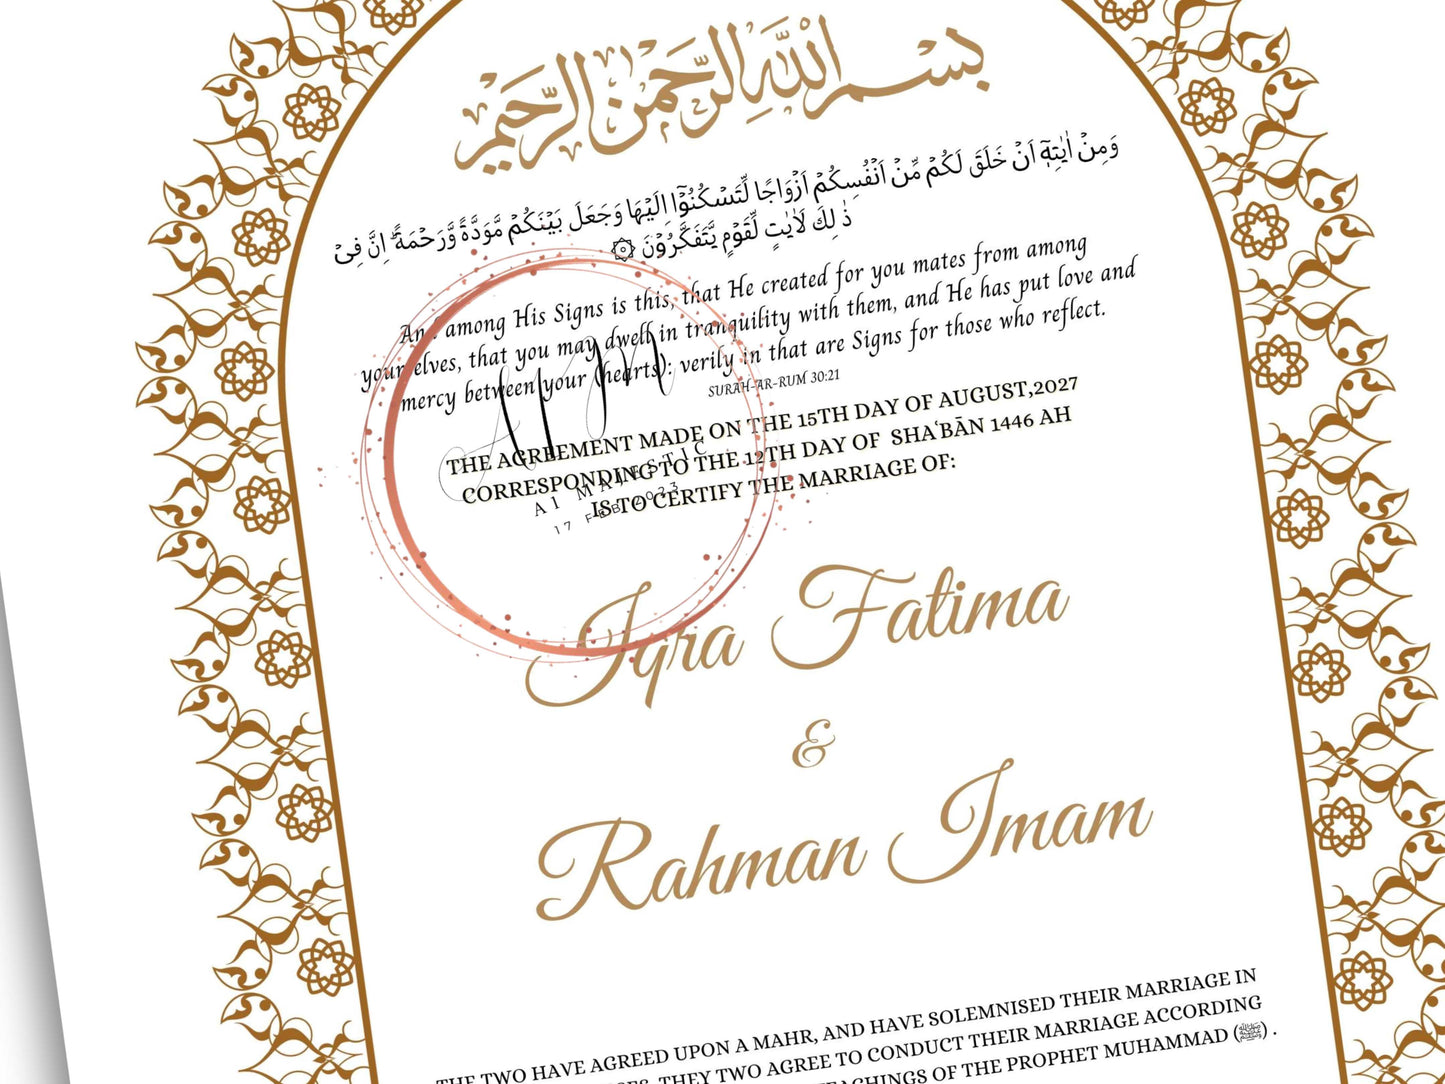 بِسْمِ اللهِ الرَّحْمٰنِ الرَّحِيْمِ
وَمِنْ اٰيٰتِهٖٓ اَنْ خَلَقَ لَكُمْ مِّنْ اَنْفُسِكُمْ اَزْوَاجًا لِّتَسْكُنُوْٓا اِلَيْهَا وَجَعَلَ بَيْنَكُمْ مَّوَدَّةً وَّرَحْمَةً ؕ اِنَّ فِىْ
ذٰ لِكَ لَاٰيٰتٍ لِّقَوْمٍ يَّتَفَكَّرُوْنَ ۞
And among His Signs is this, that He created for you mates from among
yourselves, that you may dwell in tranquility with them, and He has put love and
mercy between your (hearts): verily in that are Signs for those who reflect.
SURAH-AR-RUM 30:21
THE AGREEMENT MADE ON THE 15TH DAY OF AUGUST,2027
CORRESPONDING TO THE 12TH DAY OF SHAʿBĀN 1446 AH
IS TO CERTIFY THE MARRIAGE OF:
AI MAJESTIC
17 FEB 2023
Iqra Fatima
&
Rahman Imam
THE TWO HAVE AGREED UPON A MAHR, AND HAVE SOLEMNISED THEIR MARRIAGE IN
THEY TWO AGREE TO CONDUCT THEIR MARRIAGE ACCORDING
TEACHINGS OF THE PROPHET MUHAMMAD (ﷺ) .